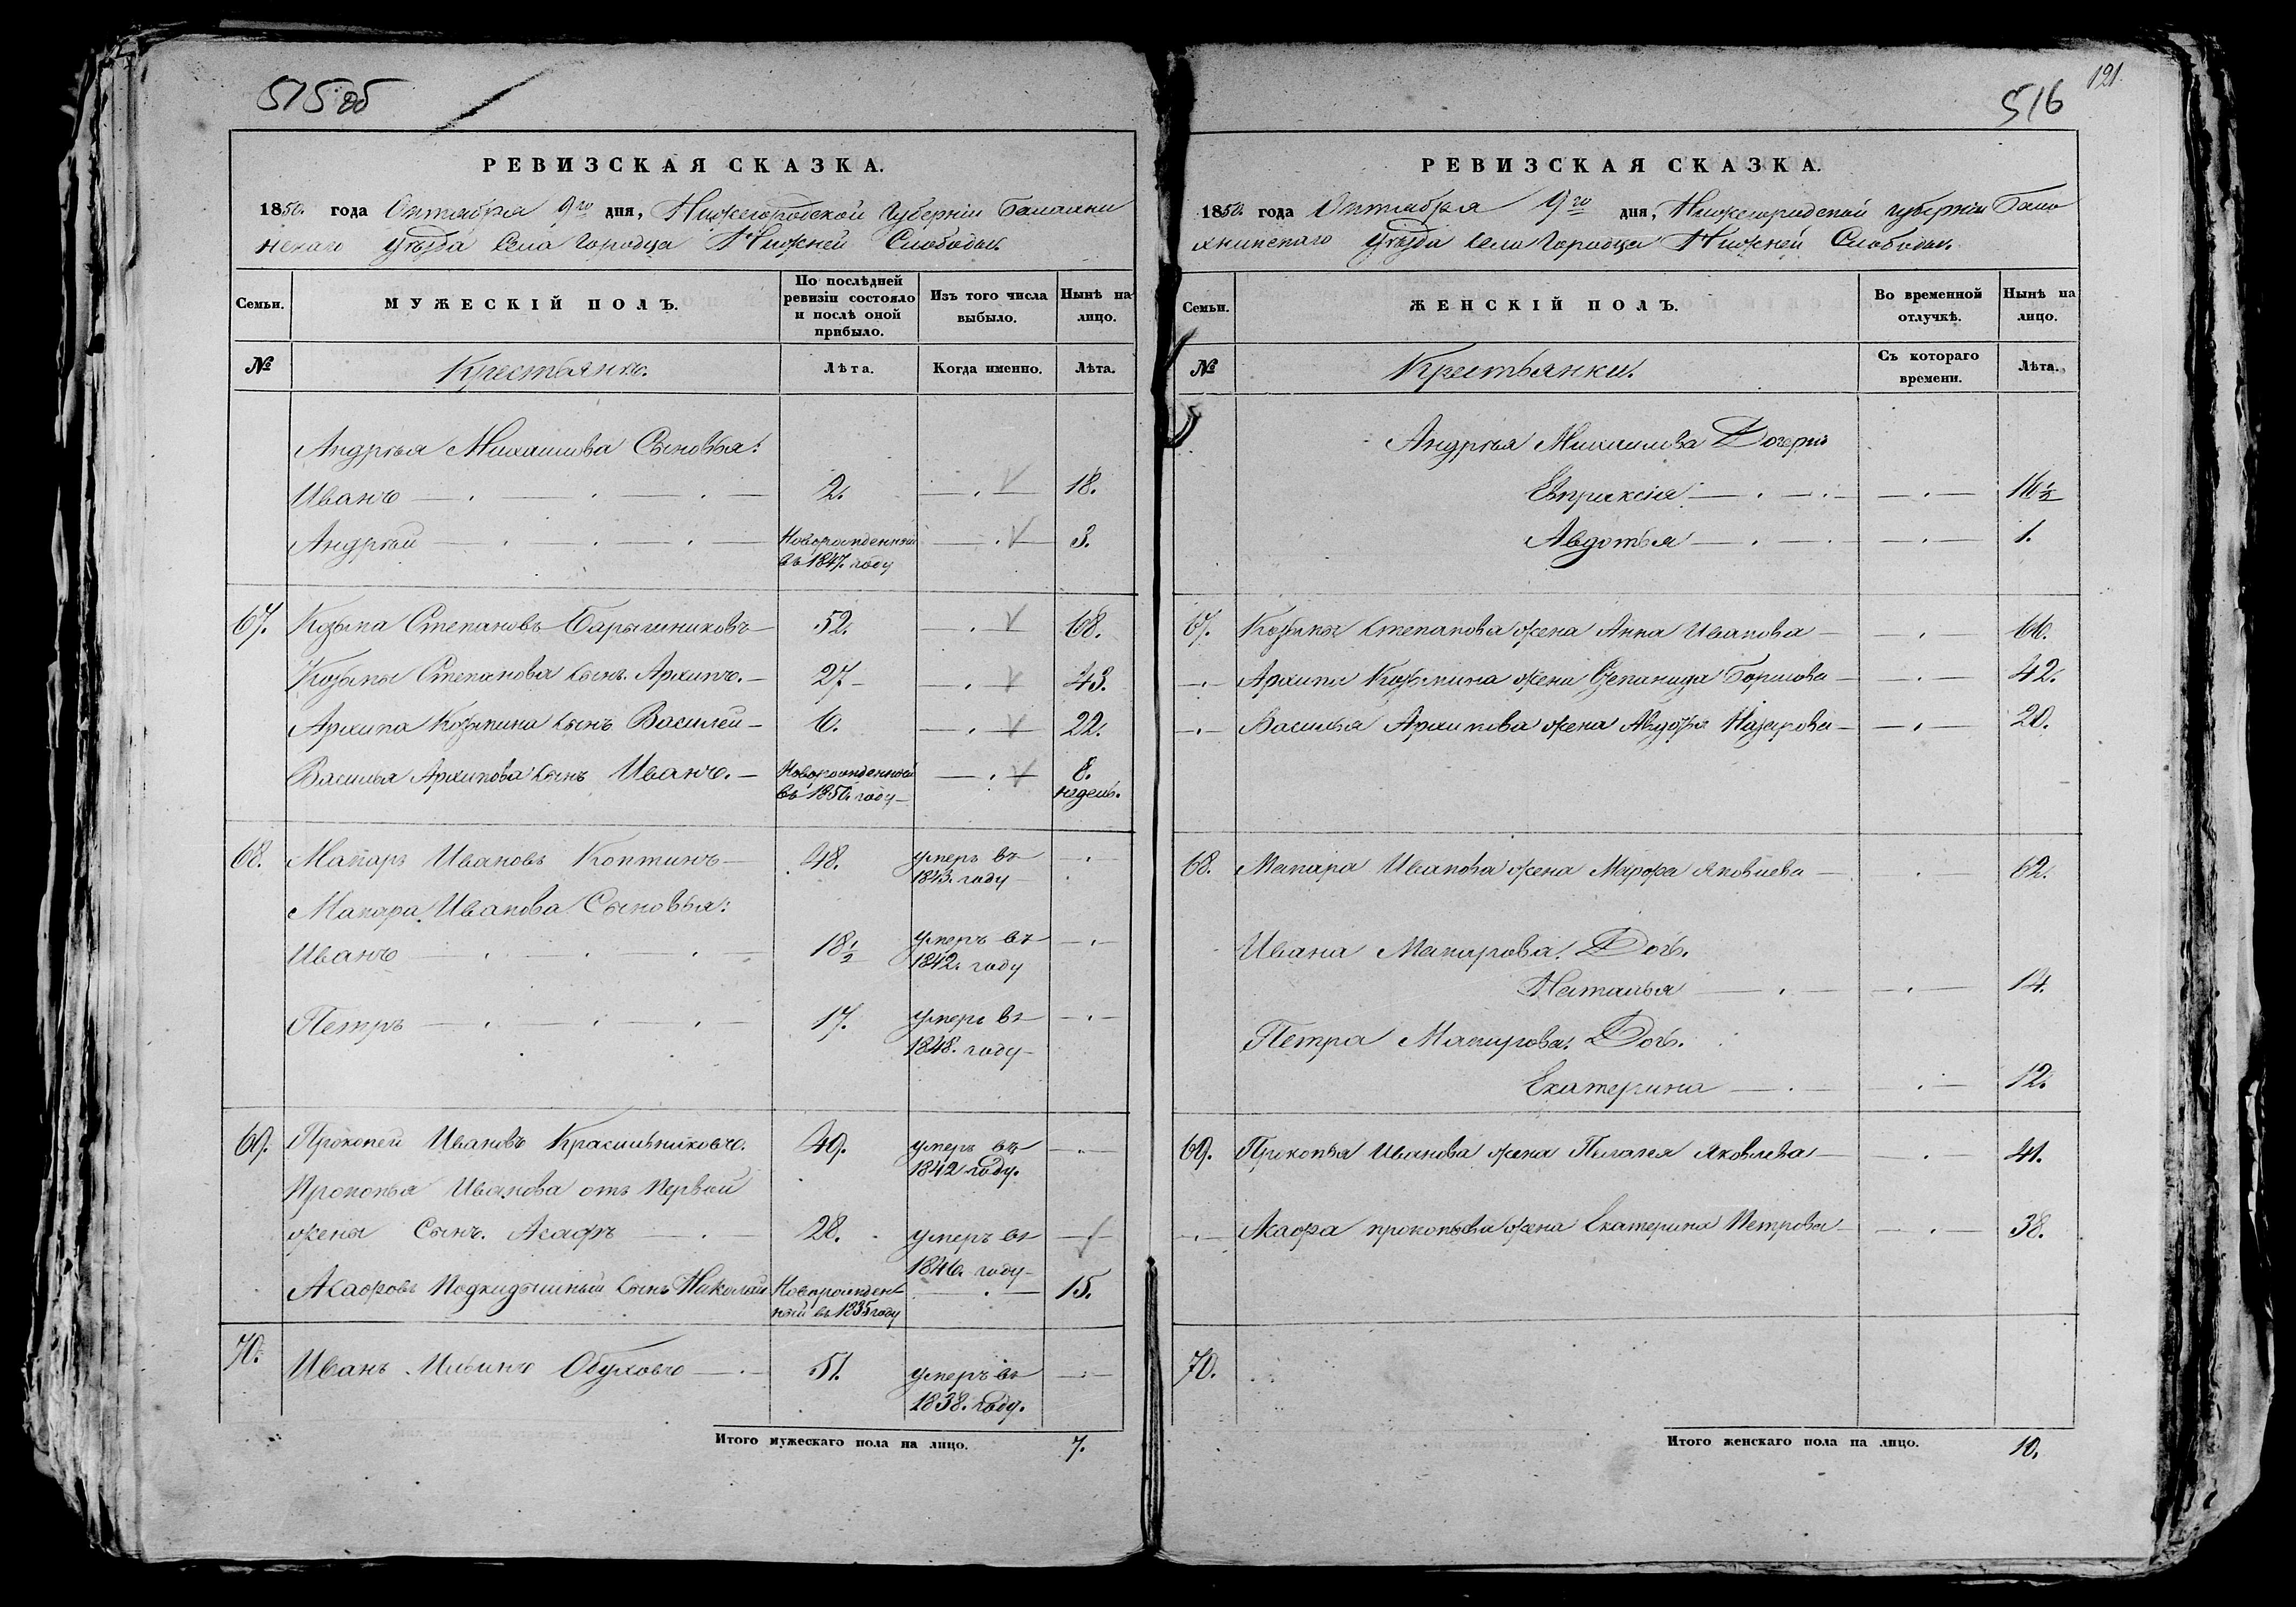 515 об
РЕВИЗСКАЯ СКАЗКА.
1850. года Октября 9го дня, Нижегородской Губерніи Балахни
нскаго уѣзда Села Городца Нижней Слободы.
Семьи.
МУЖЕСКІЙ ПОЛЪ.
По послѣдней ревизіи состояло и послѣ оной прибыло.
Изъ того числа выбыло.
Нынѣ на лицо.
№
Крестьяне.
Лѣта.
Когда именно.
Лѣта.
Андрѣя Михайлова Сыновья:
Иванъ — 2. — 18.
Андрѣй — Новорожденный въ 1847. году — 3.
67. Козьма Степановъ Барышниковъ — 52. — 68.
Козьмы Степанова сынъ Архипъ. — 27 — 43.
Архипа Козьмина сынъ Василей — 6. — 22.
Василья Архипова сынъ Иванъ. — Новорожденной въ 1850. году — 8. недель.
68. Макаръ Ивановъ Коптинъ — 48. умеръ въ 1843. году —
Макара Иванова Сыновья:
Иванъ — 18½ умеръ въ 1842. году —
Петръ — 17. умеръ въ 1848. году —
69. Прокопей Ивановъ Красильниковъ. 49. умеръ въ 1842 году. —
Прокопья Иванова отъ первой
жены Сынъ. Асафъ — 28. умеръ въ 1846. году —
Асафовъ подкидышный сынъ Николай Новорожденный въ 1835 году — 15.
70. Иванъ Ильинъ Обуховъ — 51. умеръ въ 1838. году. —
Итого мужескаго пола на лицо. 7.
121.
516
РЕВИЗСКАЯ СКАЗКА.
1850 года Октября 9го дня, Нижегородской губерніи Бала
хнинскаго уѣзда села Городца Нижней Слободы.
Семьи.
ЖЕНСКІЙ ПОЛЪ.
Во временной отлучкѣ.
Нынѣ на лицо.
№
Крестьянки.
Съ котораго времени.
Лѣта.
Андрѣя Михайлова Дочери
Евпраксія — 16½
Авдотья — 1.
67. Козьмы Степанова жена Анна Иванова — 66.
— Архипа Козьмина жена Степанида Борисова — 42.
— Василья Архипова жена Авдотья Назарова — 20.
68. Макара Иванова жена Марфа Яковлева — 62.
Ивана Макарова. Дочь.
Наталья — 14.
Петра Макарова. Дочь.
Екатерина — 12.
69. Прокопья Иванова жена Пелагея Яковлева — 41.
— Асафа прокопьева жена Екатерина Петрова — 38.
70.
Итого женскаго пола на лицо. 10.